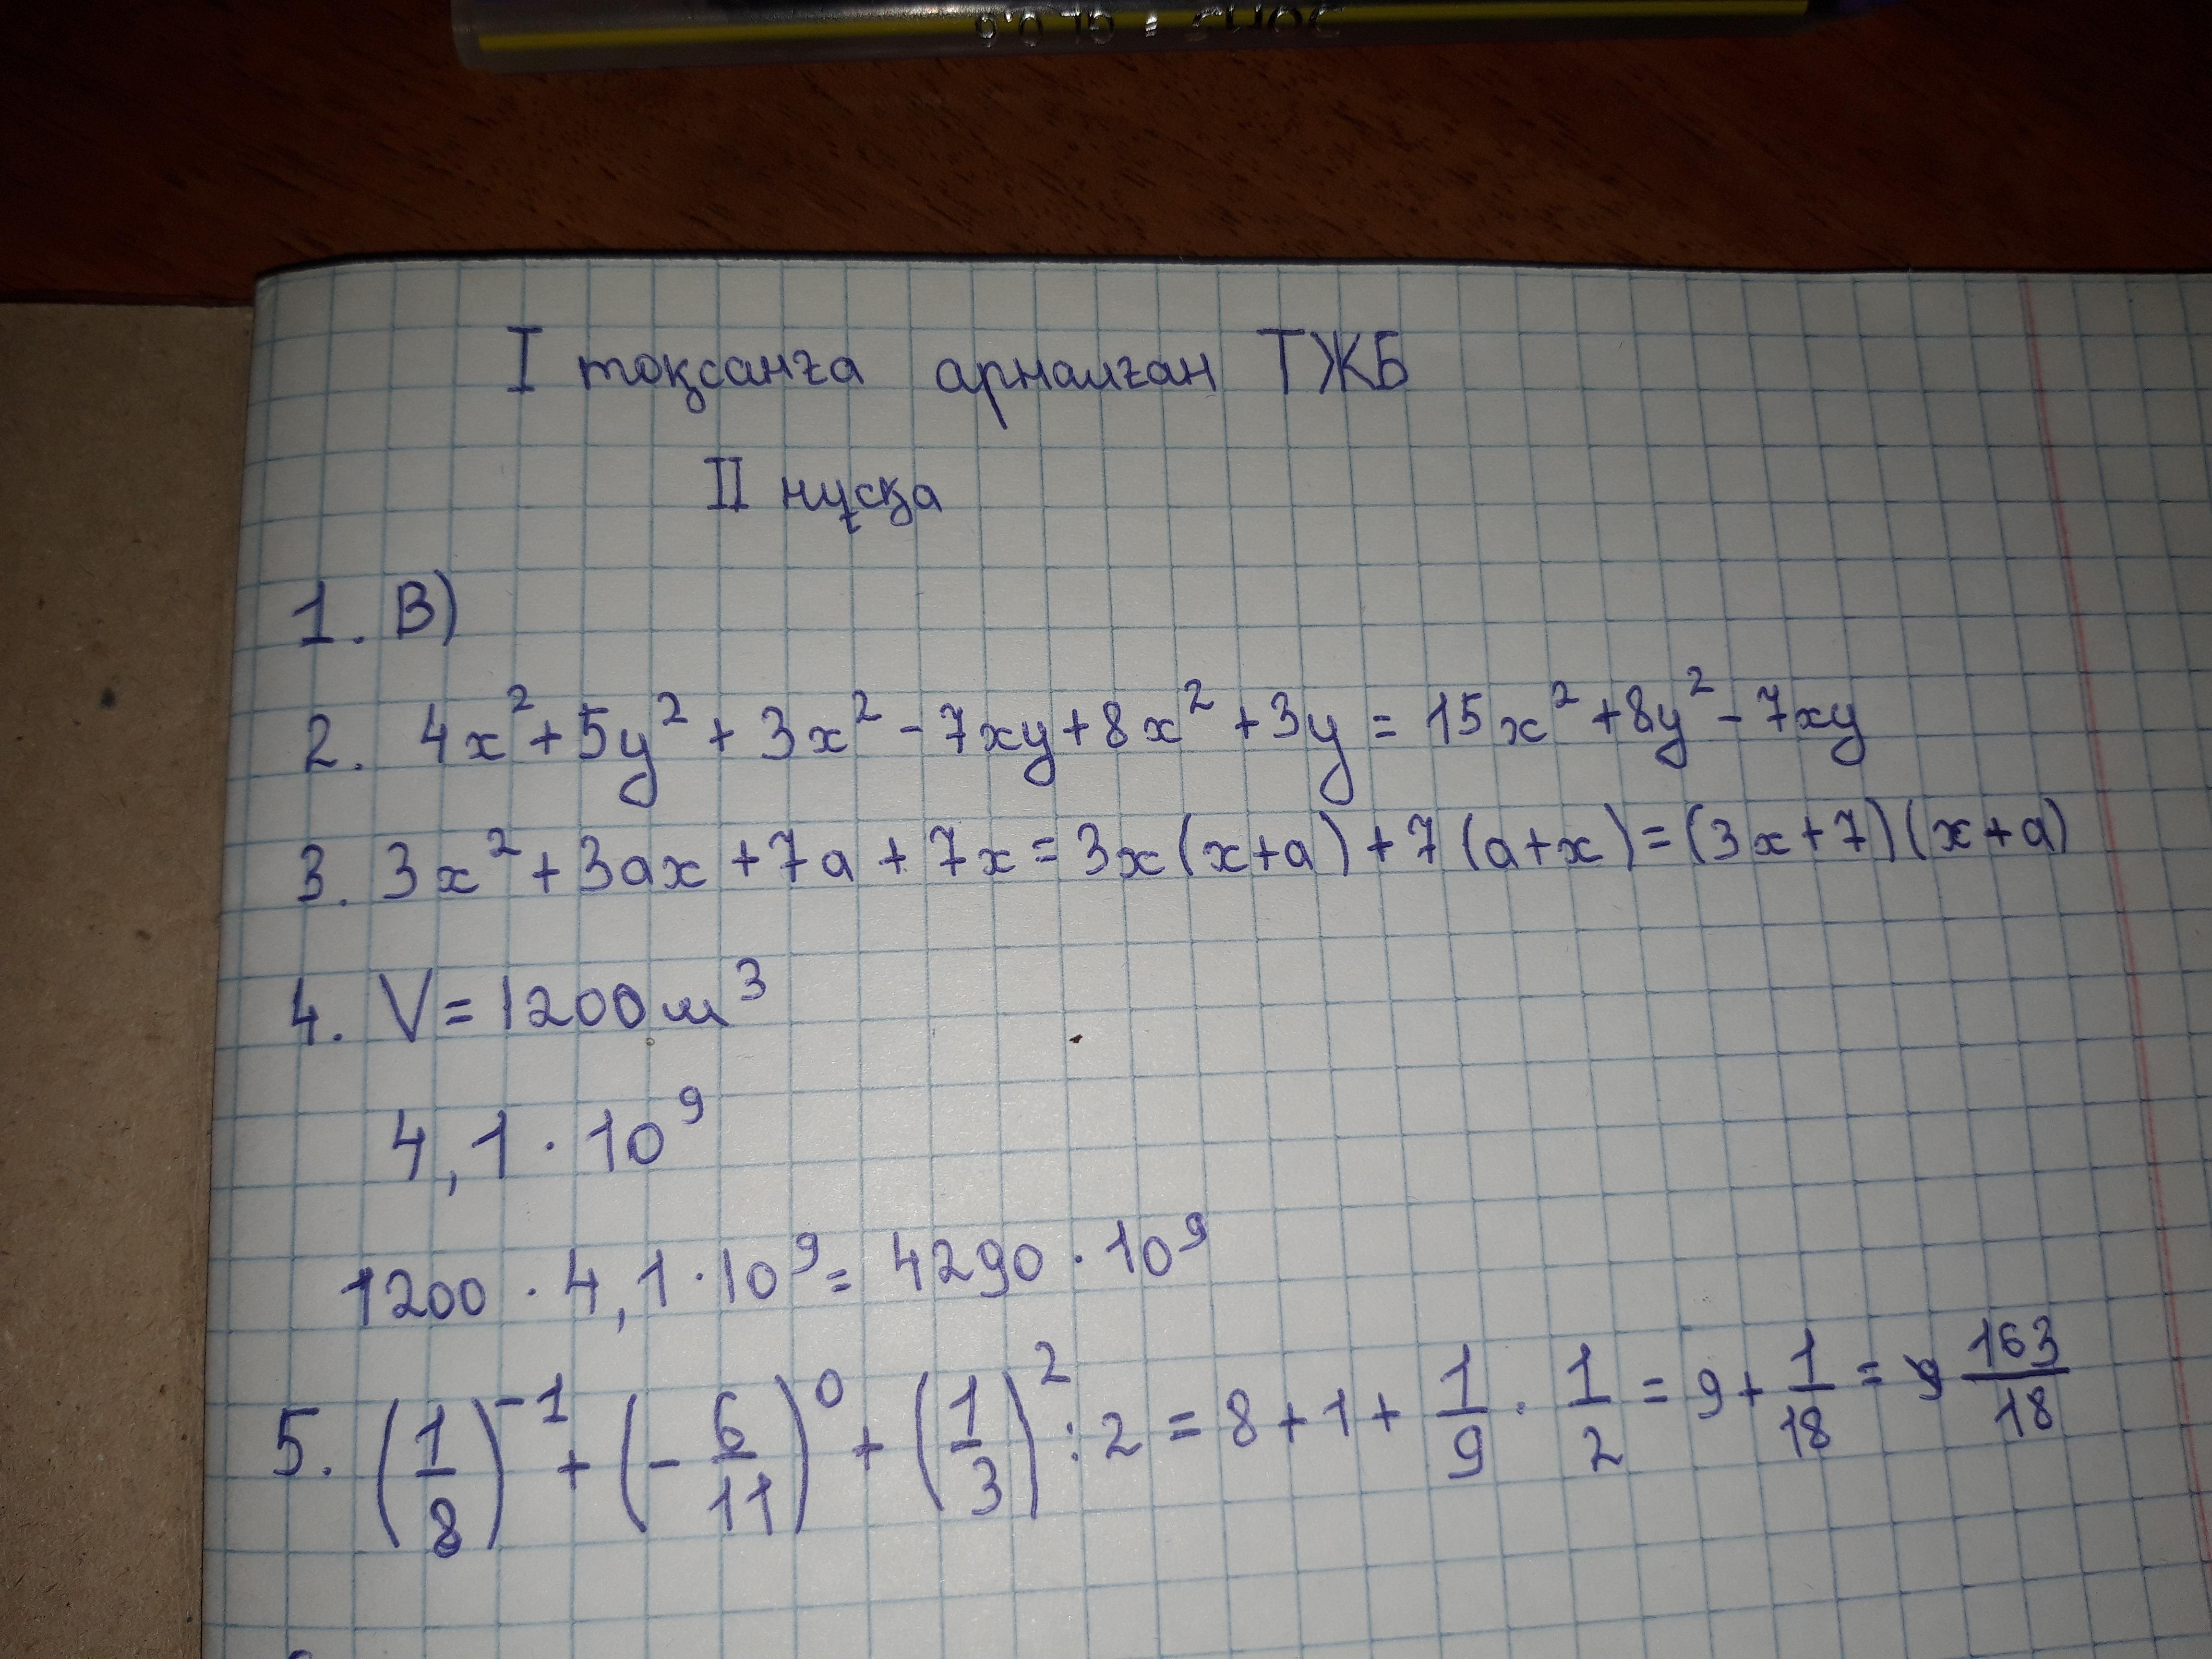 I тоқсанға арналған ТЖБ
II нұсқа
1. B)
2. 4x² + 5y² + 3x² - 7xy + 8x² + 3y = 15x² + 8y² - 7xy
3. 3x² + 3ax + 7a + 7x = 3x(x+a) + 7(a+x) = (3x+7)(x+a)
4. V = 1200 м³
4,1 · 10⁹
1200 · 4,1 · 10⁹ = 4290 · 10⁹
5. (1/8)⁻¹ + (-6/11)⁰ + (1/3)² : 2 = 8 + 1 + 1/9 · 1/2 = 9 + 1/18 = 163/18